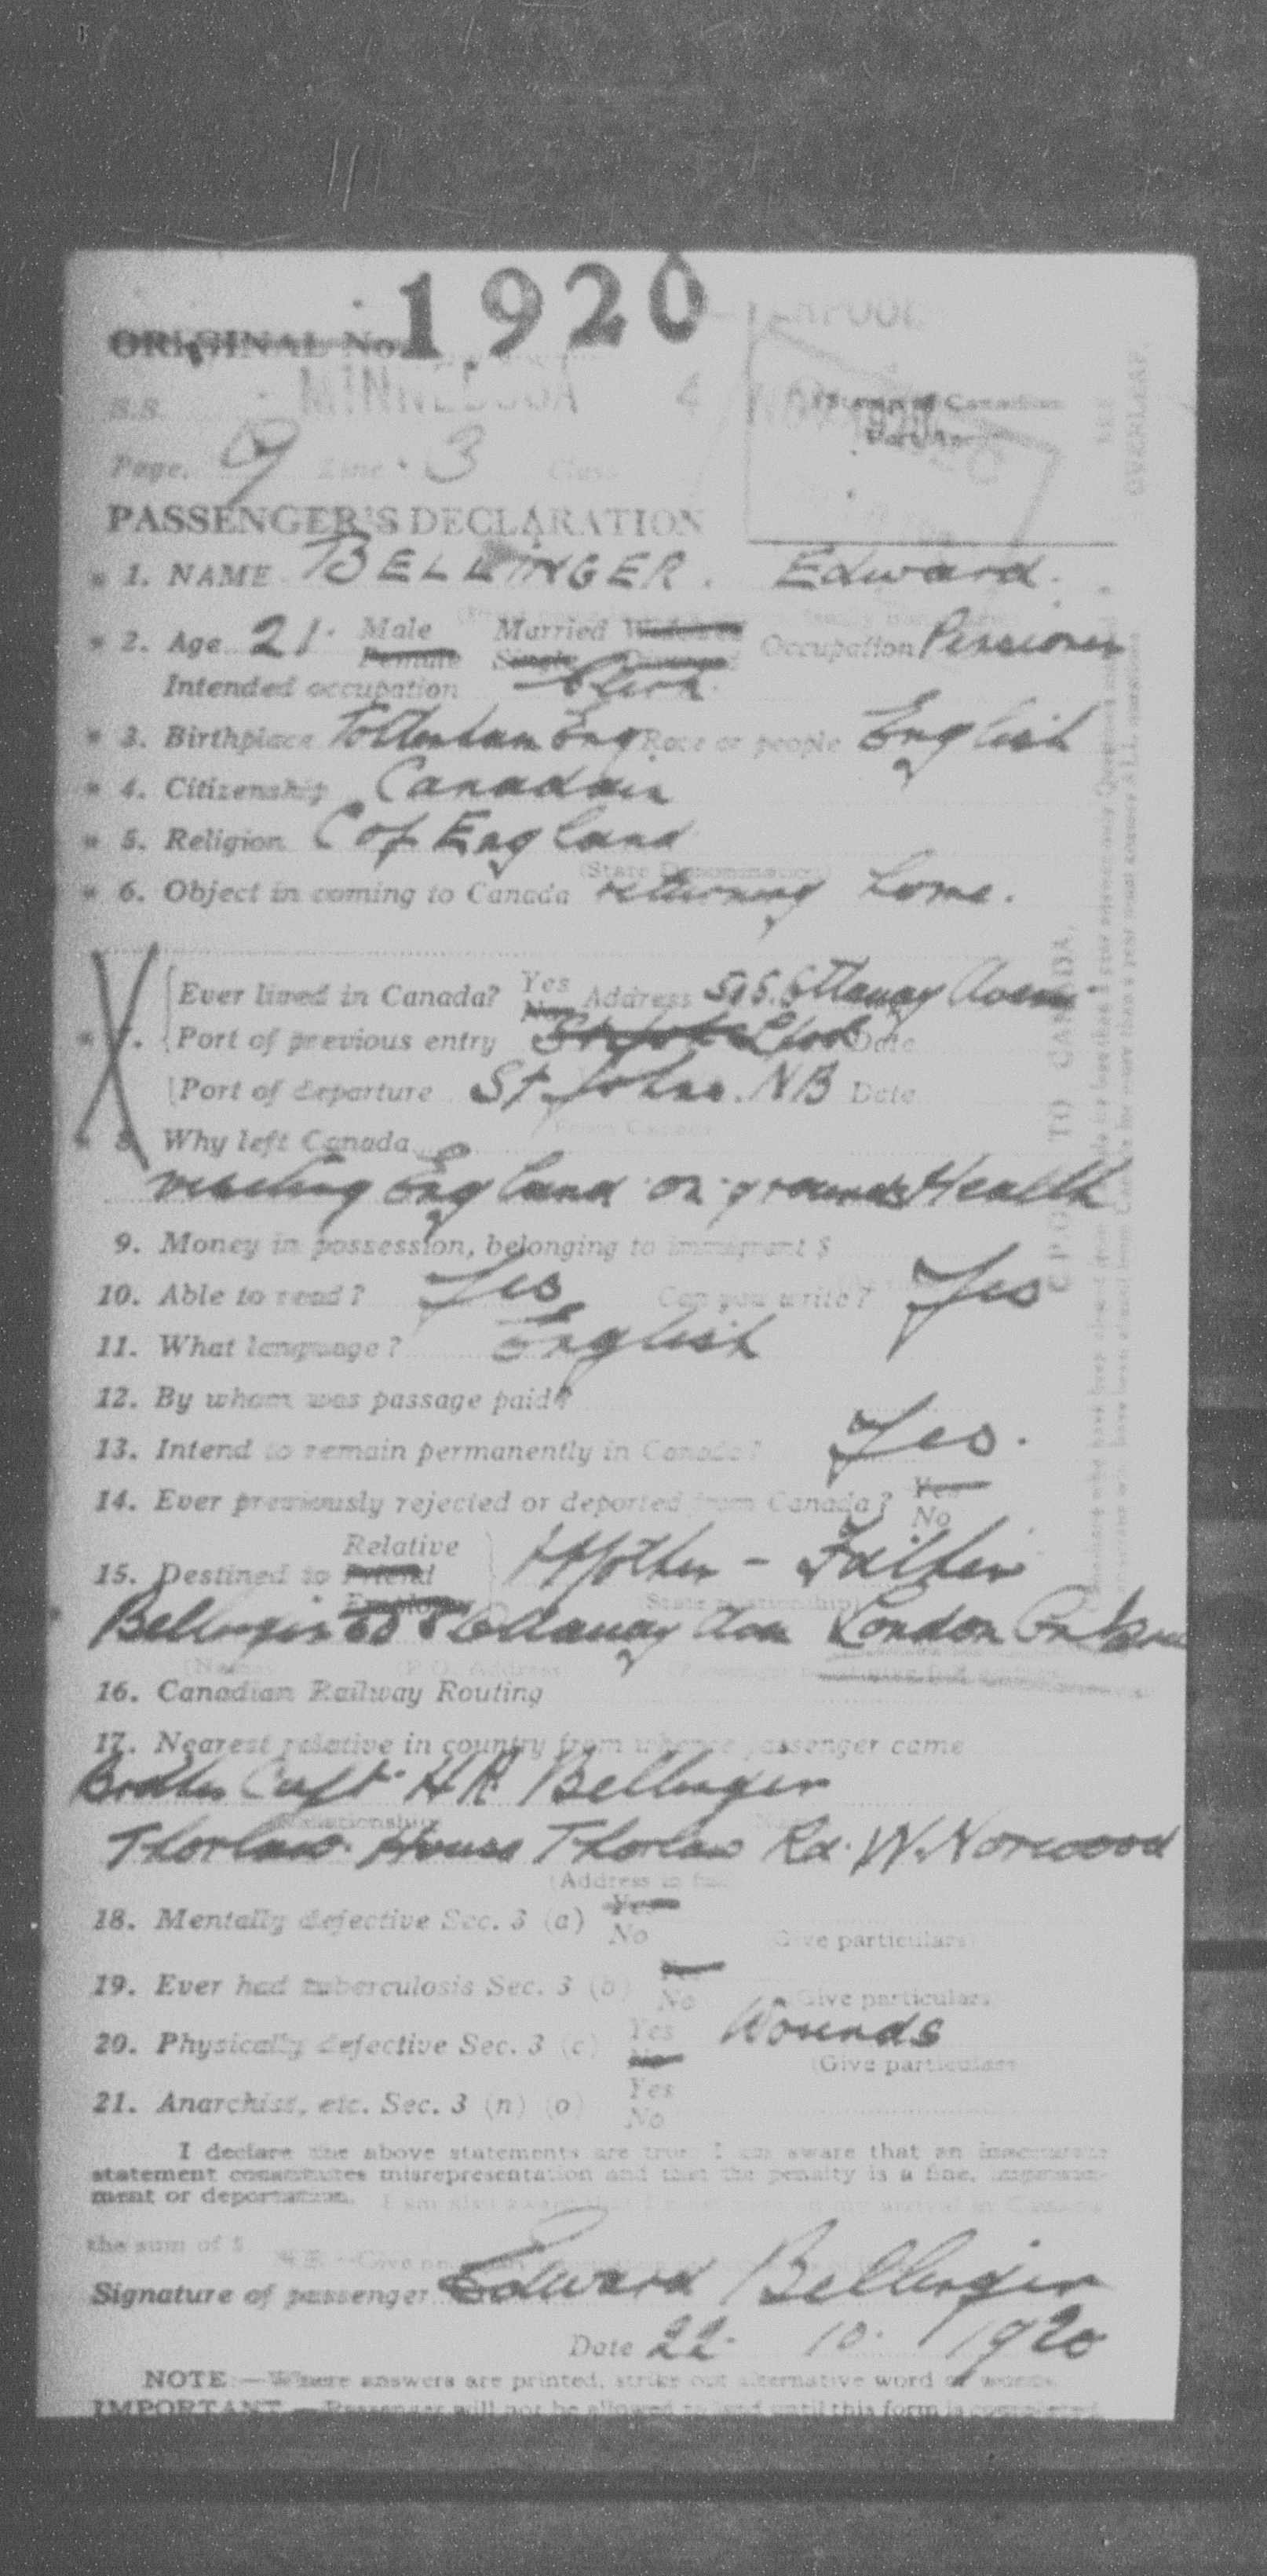 1920
ORIGINAL No.
S.S. MINNEDOSA 4 NOV 1920
Page. 9 Line 3 Class
PASSENGER'S DECLARATION
1. NAME BELLINGER. Edward.
2. Age 21. Male Married Widowed Occupation Pensioner
Female Single Divorced
Intended occupation Clerk.
3. Birthplace Tottenham Eng Race or people English
4. Citizenship Canadain
5. Religion C of England
(State Denomination)
6. Object in coming to Canada returning home.
Ever lived in Canada? Yes No Address Avenue
7. Port of previous entry Date
Port of departure St Johns. NB Date
8. Why left Canada
England on grounds Health
9. Money in possession, belonging to immigrant $
10. Able to read? Yes Can you write? Yes
11. What language? English
12. By whom was passage paid?
13. Intend to remain permanently in Canada? Yes.
14. Ever previously rejected or deported from Canada? Yes No
15. Destined to Relative Friend Employer Mother - Father
(State relationship)
Bellinger London
16. Canadian Railway Routing
17. Nearest relative in country from whence passenger came
Brother Capt. H R Bellinger
(Relationship)
Thorlaw. House Thorlaw Rd. W. Norwood
(Address in full)
18. Mentally defective Sec. 3 (a) Yes No
(Give particulars)
19. Ever had tuberculosis Sec. 3 (b) Yes No
(Give particulars)
20. Physically defective Sec. 3 (c) Yes No Wounds
(Give particulars)
21. Anarchist, etc. Sec. 3 (n) (o) Yes No
I declare the above statements are true. I am aware that an inaccurate
statement constitutes misrepresentation and that the penalty is a fine, imprison-
ment or deportation.
the sum of $
Signature of passenger Edward Bellinger
Date 22. 10. 1920
NOTE.—Where answers are printed, strike out alternative word or words.
IMPORTANT.—Passenger will not be allowed to land until this form is completed
SEE OVERLEAF.